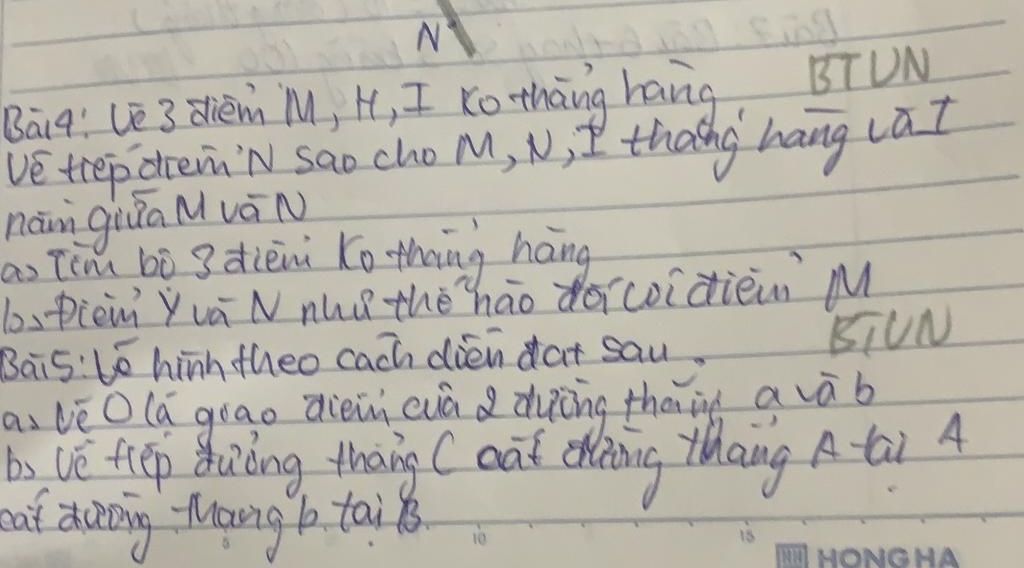 N
Bài4: Vẽ 3 điểm M, H, I Ko thẳng hàng BTVN
Vẽ tiếp điểm N sao cho M, N, I thẳng hàng và I
nằm giữa M và N
a> Tìm bộ 3 điểm Ko thẳng hàng
b> Điểm Y và N như thế nào đối với điểm M
Bài5: Vẽ hình theo cách diễn đạt sau. BTVN
a> Vẽ O là giao điểm của 2 đường thẳng a và b
b> Vẽ tiếp đường thẳng C cắt đường thẳng A tại A
cắt đường thẳng b tại B.
5 10 15
HONG HA